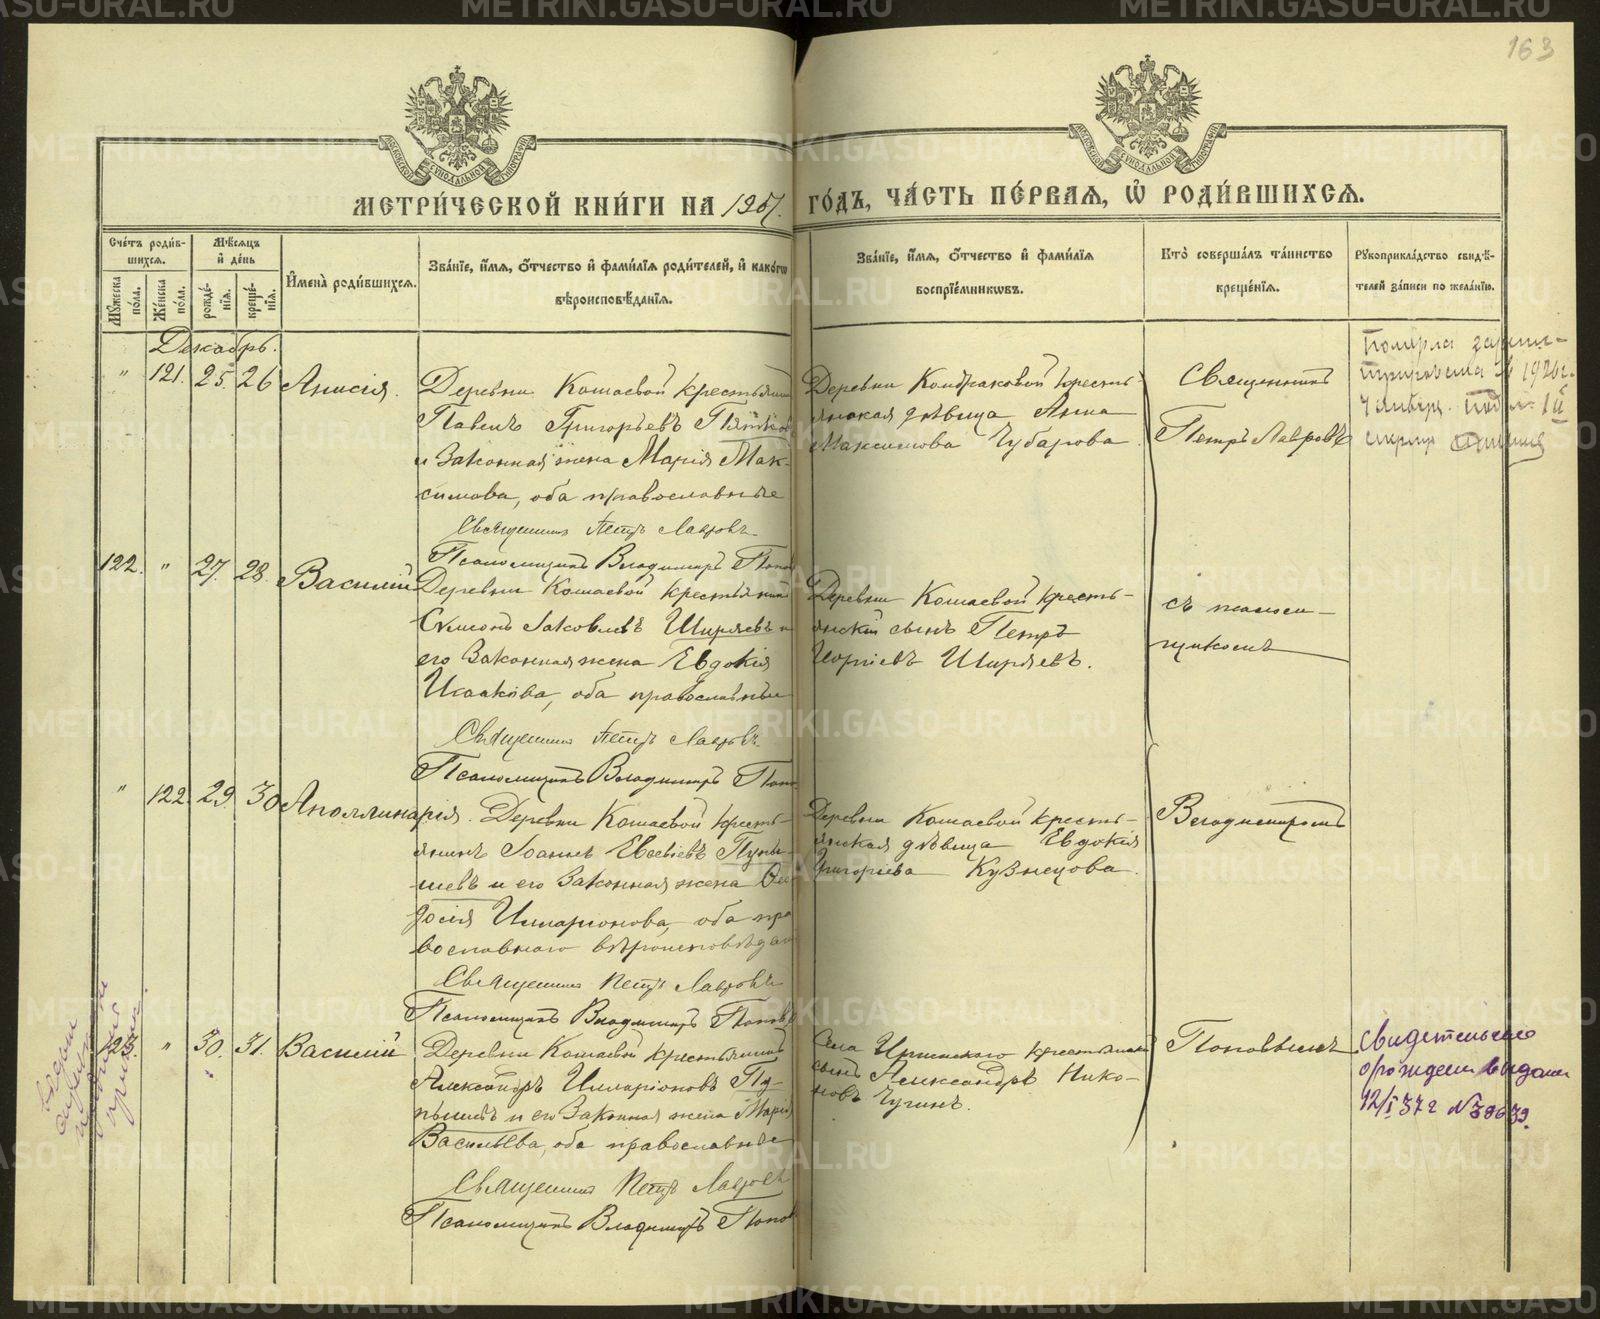 163
МЕТРИ́ЧЕСКОЙ КНИ́ГИ НА 1907. ГО́ДЪ, ЧА́СТЬ ПЕ́РВАЯ, Ѡ҆ РОДИ́ВШИХСЯ.
Сче́тъ роди́в-
шихся.
Мѣ́сяцъ
и҆ де́нь
Мꙋ́жеска пола.
Же́нска пола.
рожде́-
нїя.
креще́-
нїя.
И҆мена̀ роди́вшихся.
Зва́нїе, и҆́мя, ѻ҆́тчество и҆ фами́лїя роди́телей, и҆ како́гѡ
вѣроисповѣ́данїя.
Зва́нїе, и҆́мя, ѻ҆́тчество и҆ фами́лїя
воспрїе́мникѡвъ.
Кто̀ соверша́лъ та́инство
креще́нїя.
Рꙋкоприкла́дство свидѣ́-
телей за́писи по жела́нїю.
Декабрь.
" 121. 25 26 Анисія.
Деревни Кошаевой крестьянинъ
Павелъ Григорьевъ
и законная жена Марія Мак-
симова, оба православные
Священникъ Петръ Лавровъ
Псаломщикъ Владимиръ Попов
Деревни Кондраковой кресть-
янская дѣвица Анна
Максимова Чубарова.
Священникъ
Петръ Лавровъ
Померла
в 1926 г.
4 января.
122. " 27. 28. Василій
Деревни Кошаевой крестьянин
Сѵмеонъ Іаковлевъ Ширяевъ и
его законная жена Евдокія
Исаакова, оба православные
Священникъ Петръ Лавровъ
Псаломщикъ Владимиръ Попо
Деревни Кошаевой кресть-
янскій сынъ Петръ
Ширяевъ.
съ псалом-
щикомъ
" 122. 29. 30 Аполлинарія.
Деревни Кошаевой кресть-
янинъ Іоаннъ Евсевіевъ Пупы-
шевъ и его законная жена Ѳео-
досія Илларіонова, оба пра
вославнаго вѣроисповѣдан
Священникъ Петръ Лавровъ
Псаломщикъ Владимиръ Поповъ
Деревни Кошаевой кресть-
янская дѣвица Евдокія
Григоріева Кузнецова.
Владимиромъ
123. " 30. 31. Василій
Деревни Кошаевой крестьянинъ
Александръ Илларіоновъ Пу-
пышевъ и его законная жена Марія
Васильева, оба православные
Священникъ Петръ Лавровъ
Псаломщикъ Владимиръ Попов
Села Иргинского крестьянскій
сынъ Александръ Нико-
новъ Чугинъ.
Поповымъ
Свидетельство
о рождении выдано
12/I 37 г №38639.